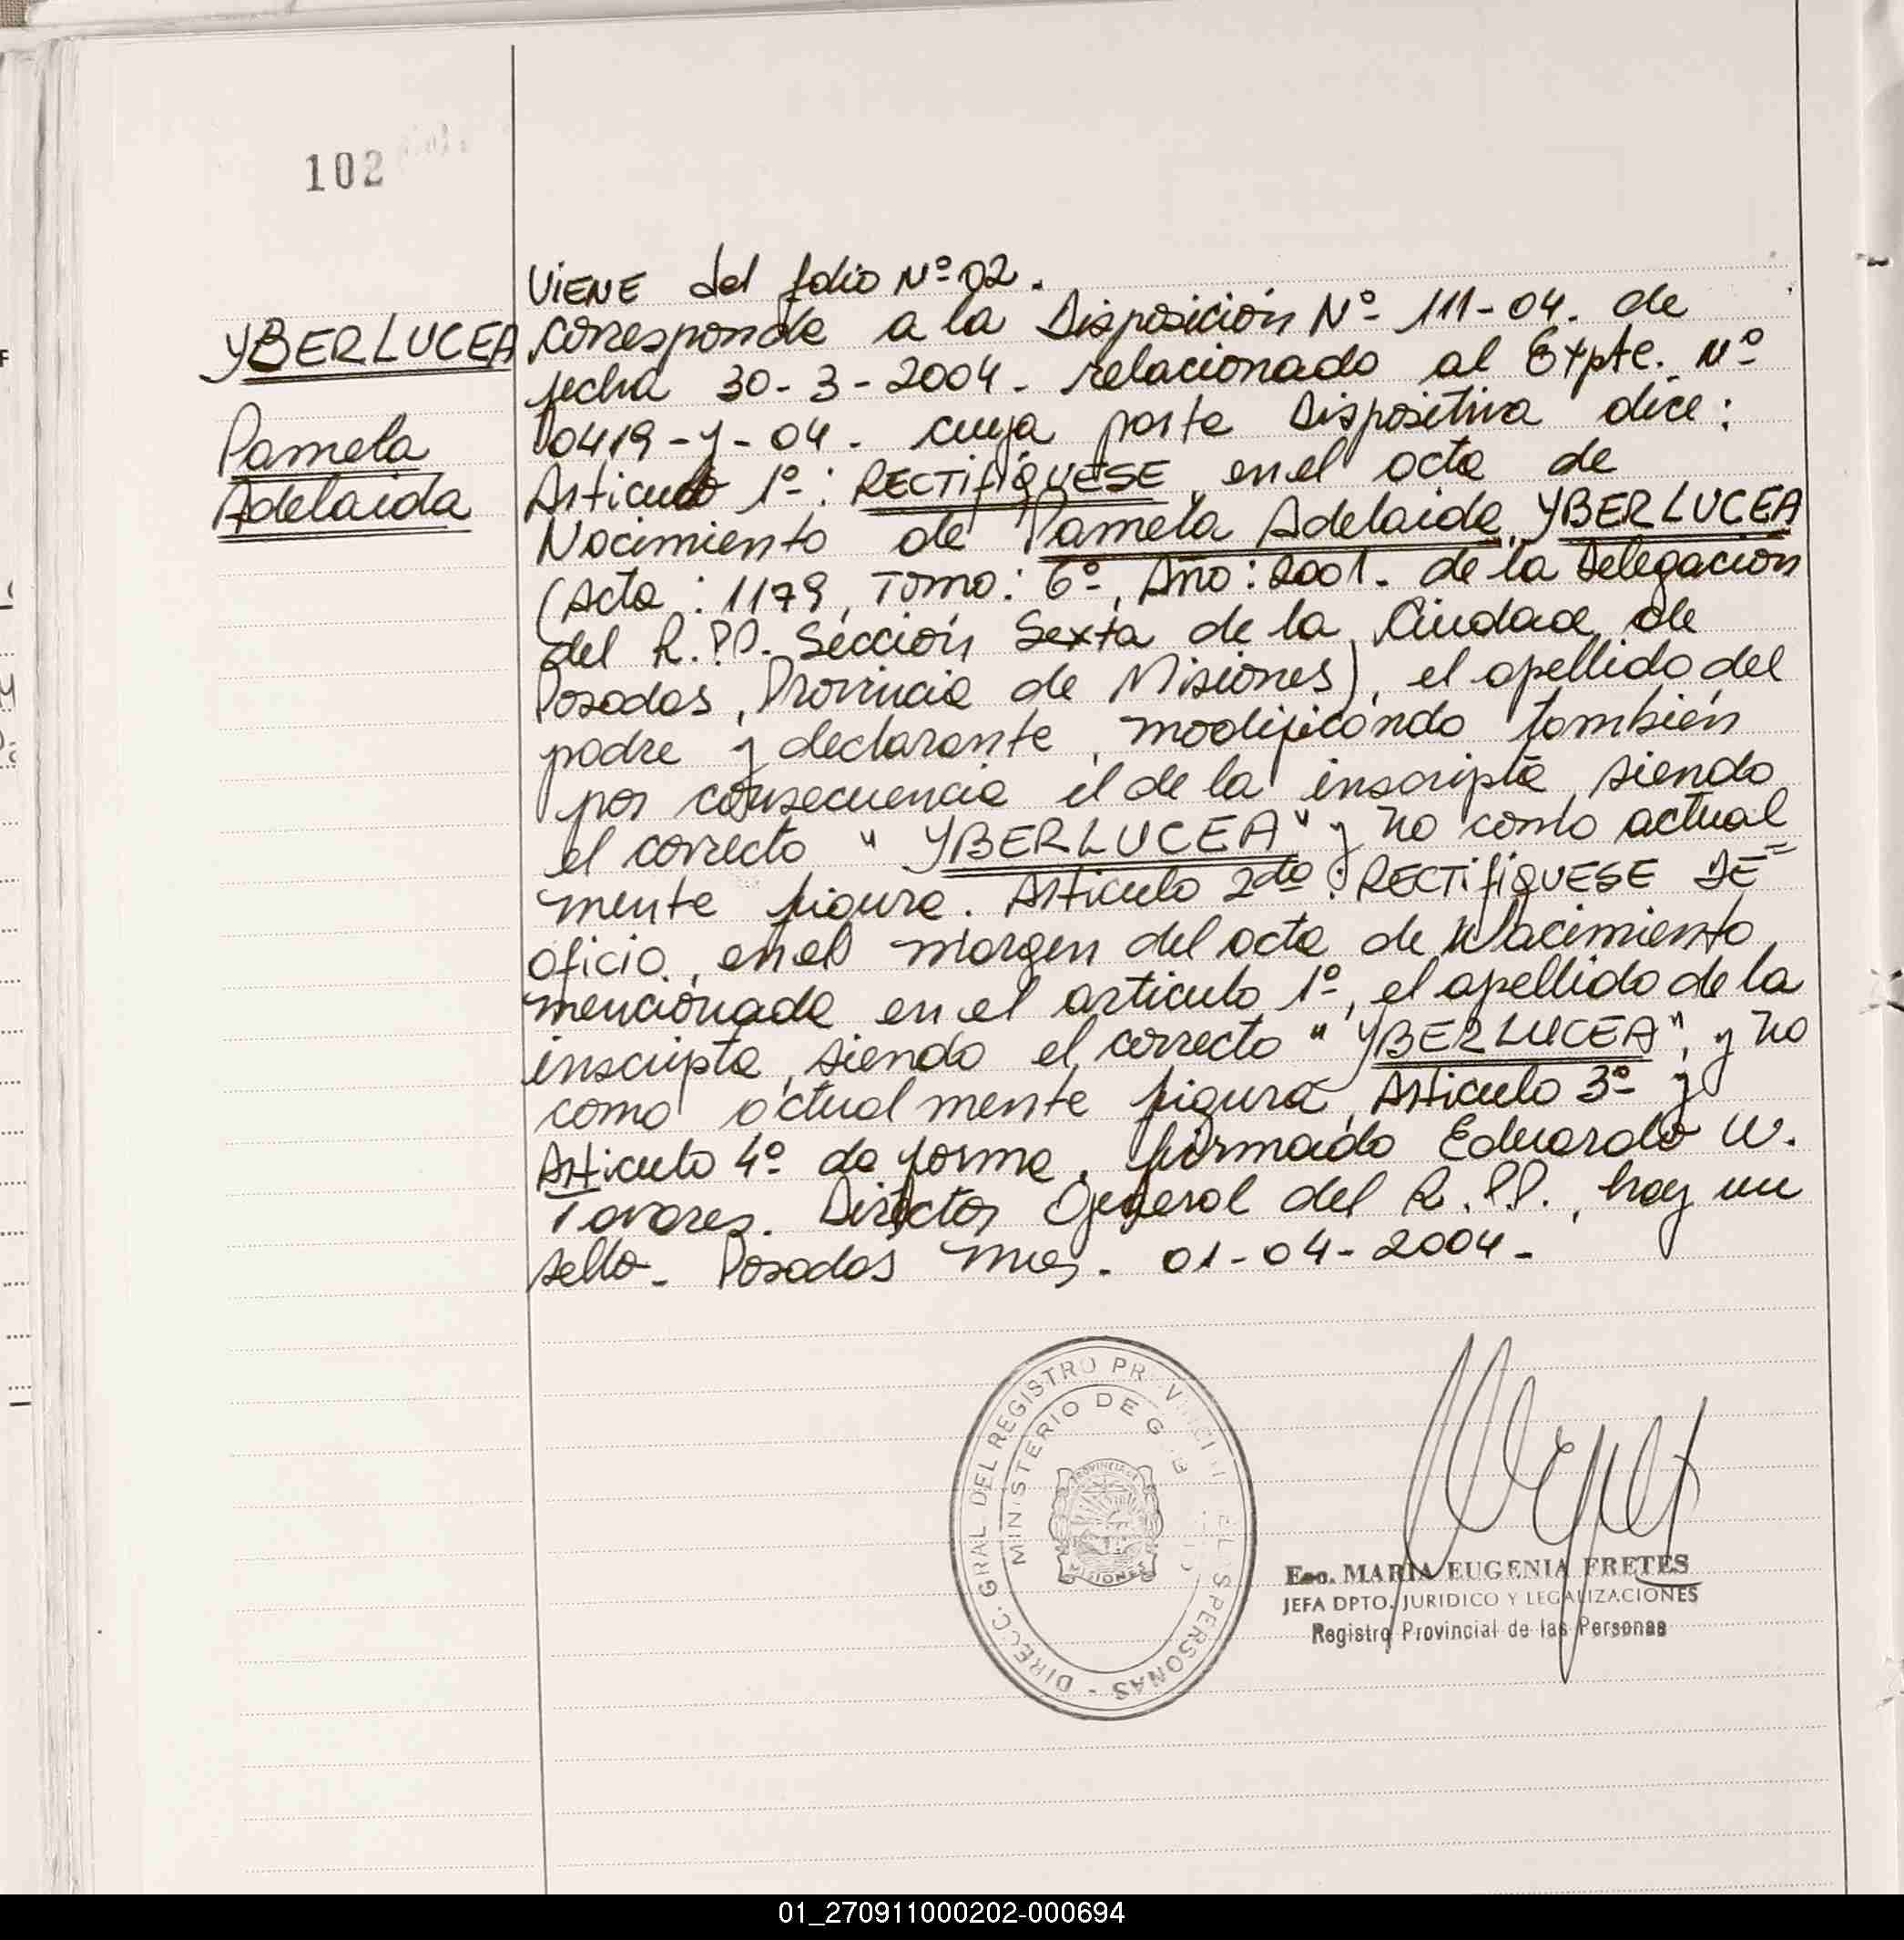 102
YBERLUCEA
Pamela
Adelaida
VIENE del folio Nº 02.
Corresponde a la Disposición Nº 111-04. de
fecha 30-3-2004. relacionado al Expte. Nº
0419-Y-04. cuya parte Dispositiva dice:
Articulo 1º: RECTIFÍQUESE, en el acta de
Nacimiento de Pamela Adelaida YBERLUCEA
(Acta: 1179, Tomo: 6º, Año: 2001. de la Delegación
del R.P.P. Sección Sexta de la Ciudad de
Posadas, Provincia de Misiones), el apellido del
padre y declarante, modificando también
por consecuencia el de la inscripta, siendo
el correcto "YBERLUCEA" y no como actual
mente figura. Articulo 2do: RECTIFÍQUESE DE=
oficio, en el margen del acta de Nacimiento
mencionada en el articulo 1º, el apellido de la
inscripta, siendo el correcto "YBERLUCEA", y no
como actualmente figura, Articulo 3º y
Articulo 4º de forma. firmado Eduardo W.
Tavares. Director General del R.P.P., hay un
sello. Posadas Mnes. 01-04-2004-
DIRECC. GRAL. DEL REGISTRO PROVINCIAL DE LAS PERSONAS -
MINISTERIO DE GOBIERNO
PROVINCIA DE
MISIONES
Esc. MARIA EUGENIA FRETES
JEFA DPTO. JURIDICO Y LEGALIZACIONES
Registro Provincial de las Personas
01_270911000202-000694